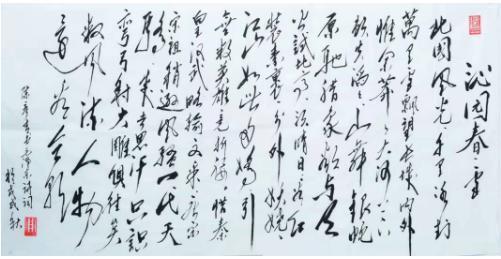 沁园春雪
北国风光千里冰封
万里雪飘望长城内外
惟余莽々大河上下
顿失滔々山舞银蛇
原驰蜡象欲与天
公试比高须晴日看红
装素裹分外妖娆
江山如此多娇引
无数英雄竞折腰惜秦
皇汉武略输文采唐宗
宋祖稍逊风骚一代天
骄成吉思汗只识
弯弓射大雕俱往矣
数风流人物
还看今朝
毛泽东诗词
于戊戌秋